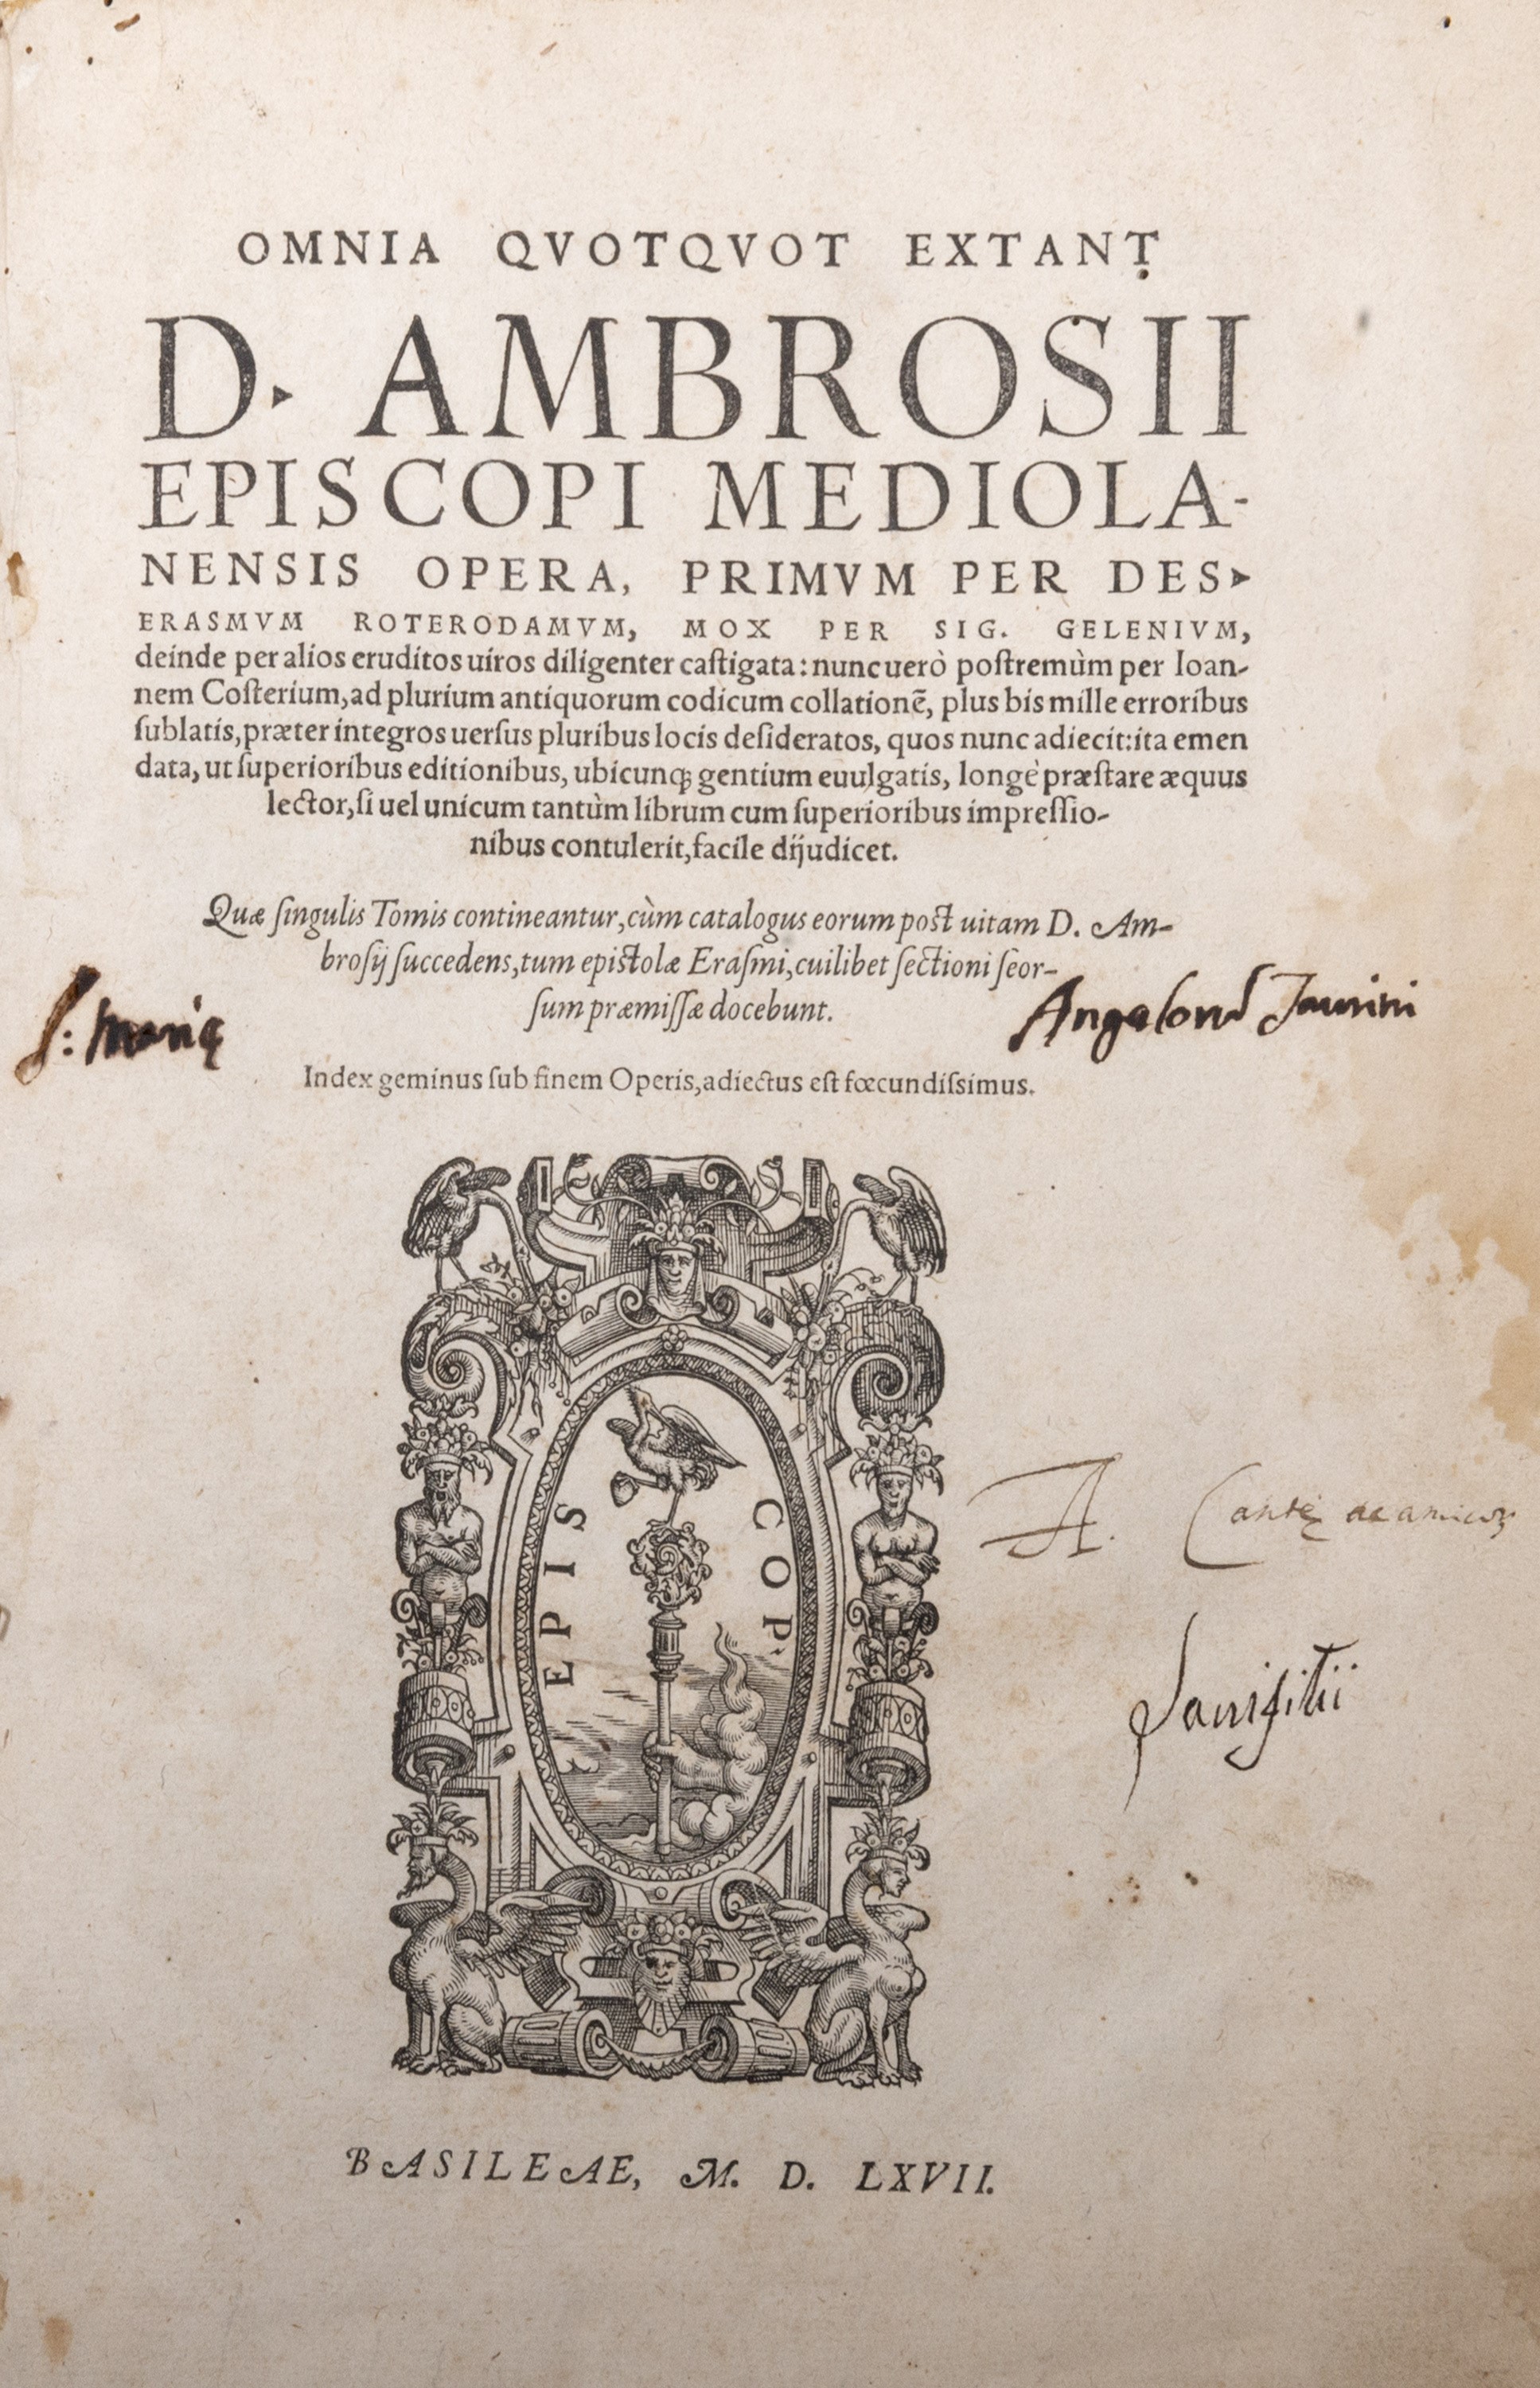 OMNIA QVOTQVOT EXTANT
D. AMBROSII
EPISCOPI MEDIOLA-
NENSIS OPERA, PRIMVM PER DES
ERASMVM ROTERODAMVM, MOX PER SIG. GELENIVM,
deinde per alios eruditos uiros diligenter castigata: nunc uerò postremùm per Ioan-
nem Costerium, ad plurium antiquorum codicum collationē, plus bis mille erroribus
sublatis, præter integros uersus pluribus locis desideratos, quos nunc adiecit: ita emen
data, ut superioribus editionibus, ubicunq; gentium euulgatis, longè præstare æquus
lector, si uel unicum tantùm librum cum superioribus impressio-
nibus contulerit, facile dijudicet.
Quæ singulis Tomis contineantur, cùm catalogus eorum post uitam D. Am-
brosij succedens, tum epistolæ Erasmi, cuilibet sectioni seor-
sum præmissæ docebunt.
S: Marię Angelorũ Taurini
Index geminus sub finem Operis, adiectus est fœcundissimus.
EPIS COP
A.
BASILEAE, M. D. LXVII.